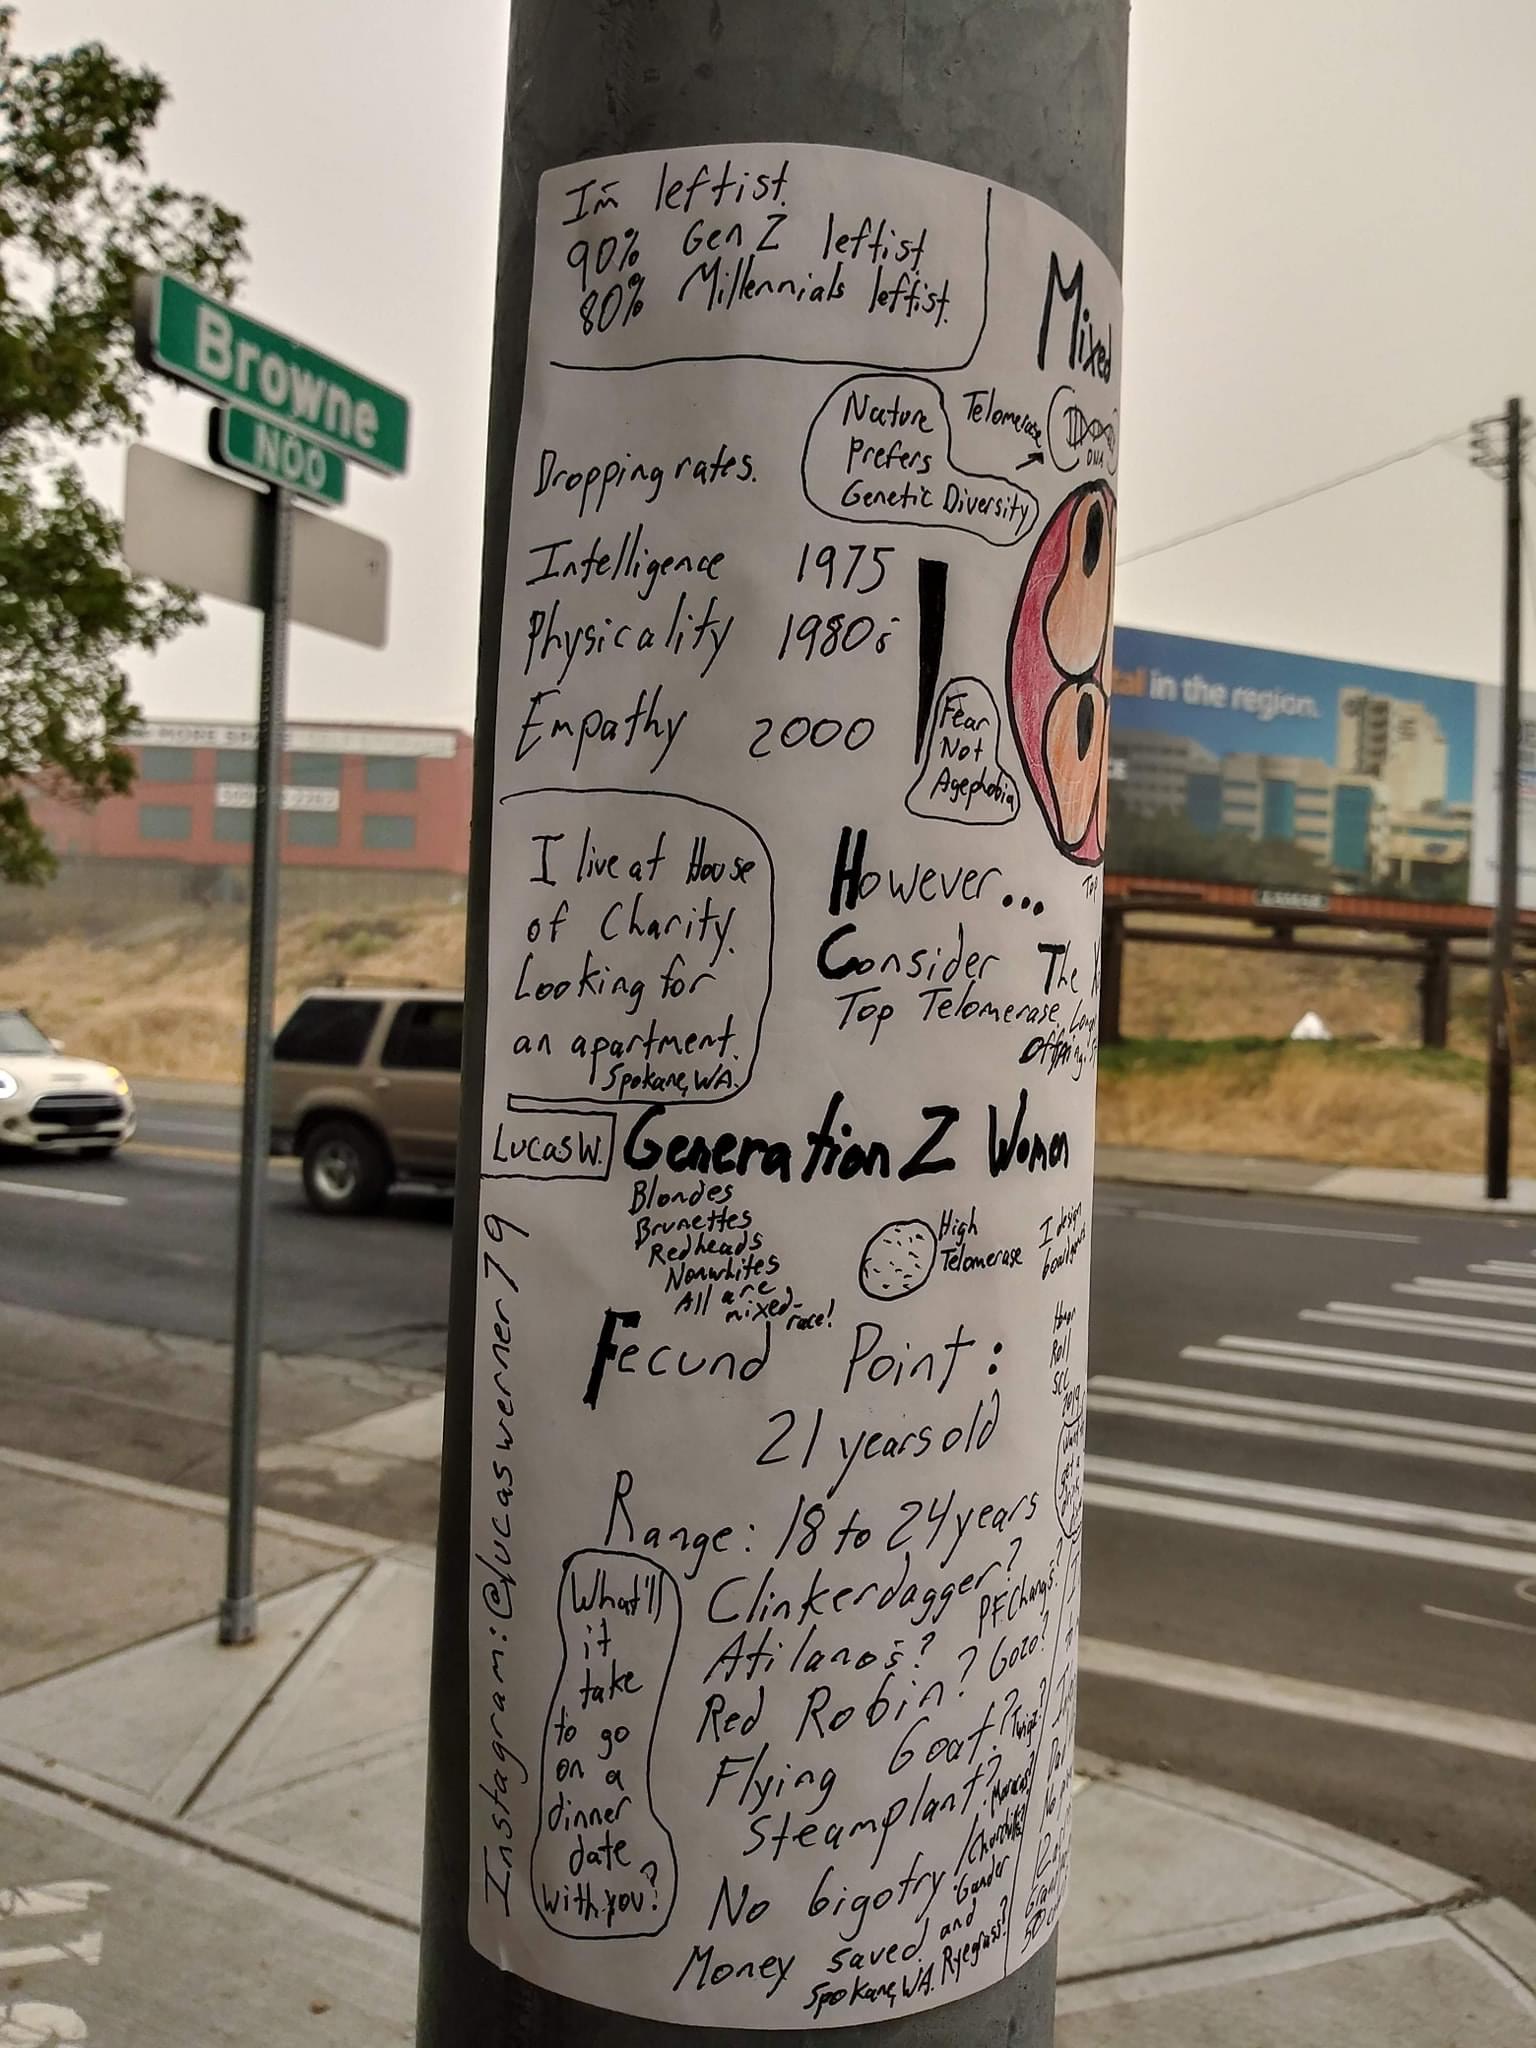 Browne
N00
tal in the region.
MORE SPA
I'm leftist.
90% Gen Z leftist
80% Millennials leftist.
Mixed
Telomerase
DNA
Nature
Prefers
Genetic Diversity
Dropping rates.
Intelligence 1975
Physicality 1980s
Empathy 2000
Fear
Not
Agephobia
I live at House
of Charity.
Looking for
an apartment.
Spokane, WA.
However...
Consider The
Top Telomerase.
Top
Lucas W.
Generation Z Women
Blondes
Brunettes
Redheads
Nonwhites
All are
mixed-
race!
High
Telomerase
I design
boardgames
Honor
Roll
SCC
2019
Fecund Point:
21 years old
Range: 18 to 24 years
What'll
it
take
to go
on a
dinner
date
with you?
Clinkerdagger?
P.F. Changs?
Atilanos?
Red Robin? Gozo?
Flying Goat? Twigs?
Steamplant? Maracas?
Churchills?
No bigotry. Gander
Money saved. and
Ryegrass?
Spokane, WA.
Instagram:@lucaswerner79